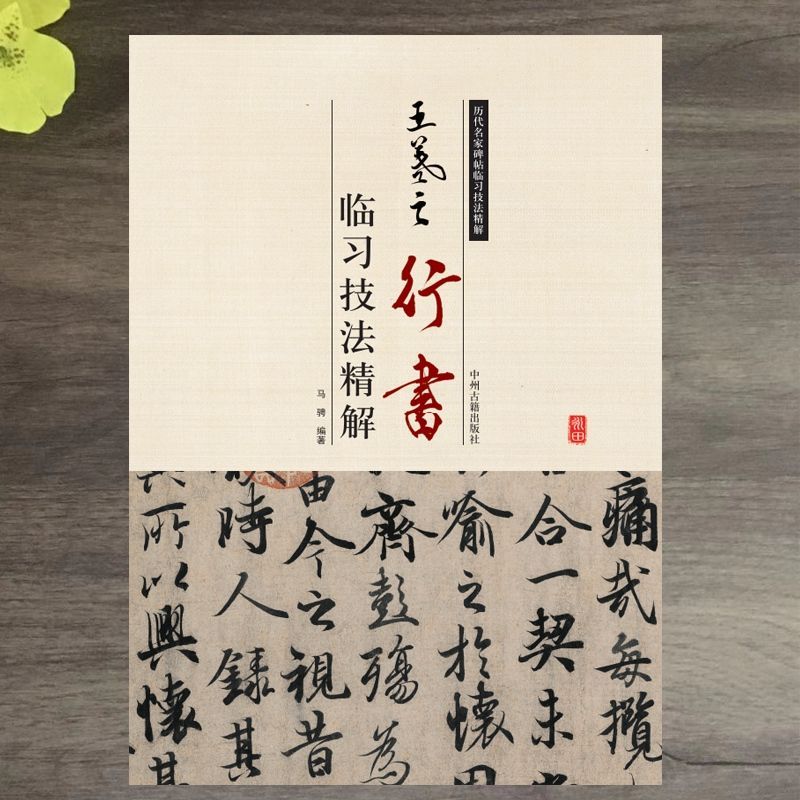 历代名家碑帖临习技法精解
中州古籍出版社
王羲之行書
临习技法精解
马骋 编著
痛哉每攬
合一契未
喻之於懷固
齊彭殤為
由今之視昔
時人錄其
所以興懷其